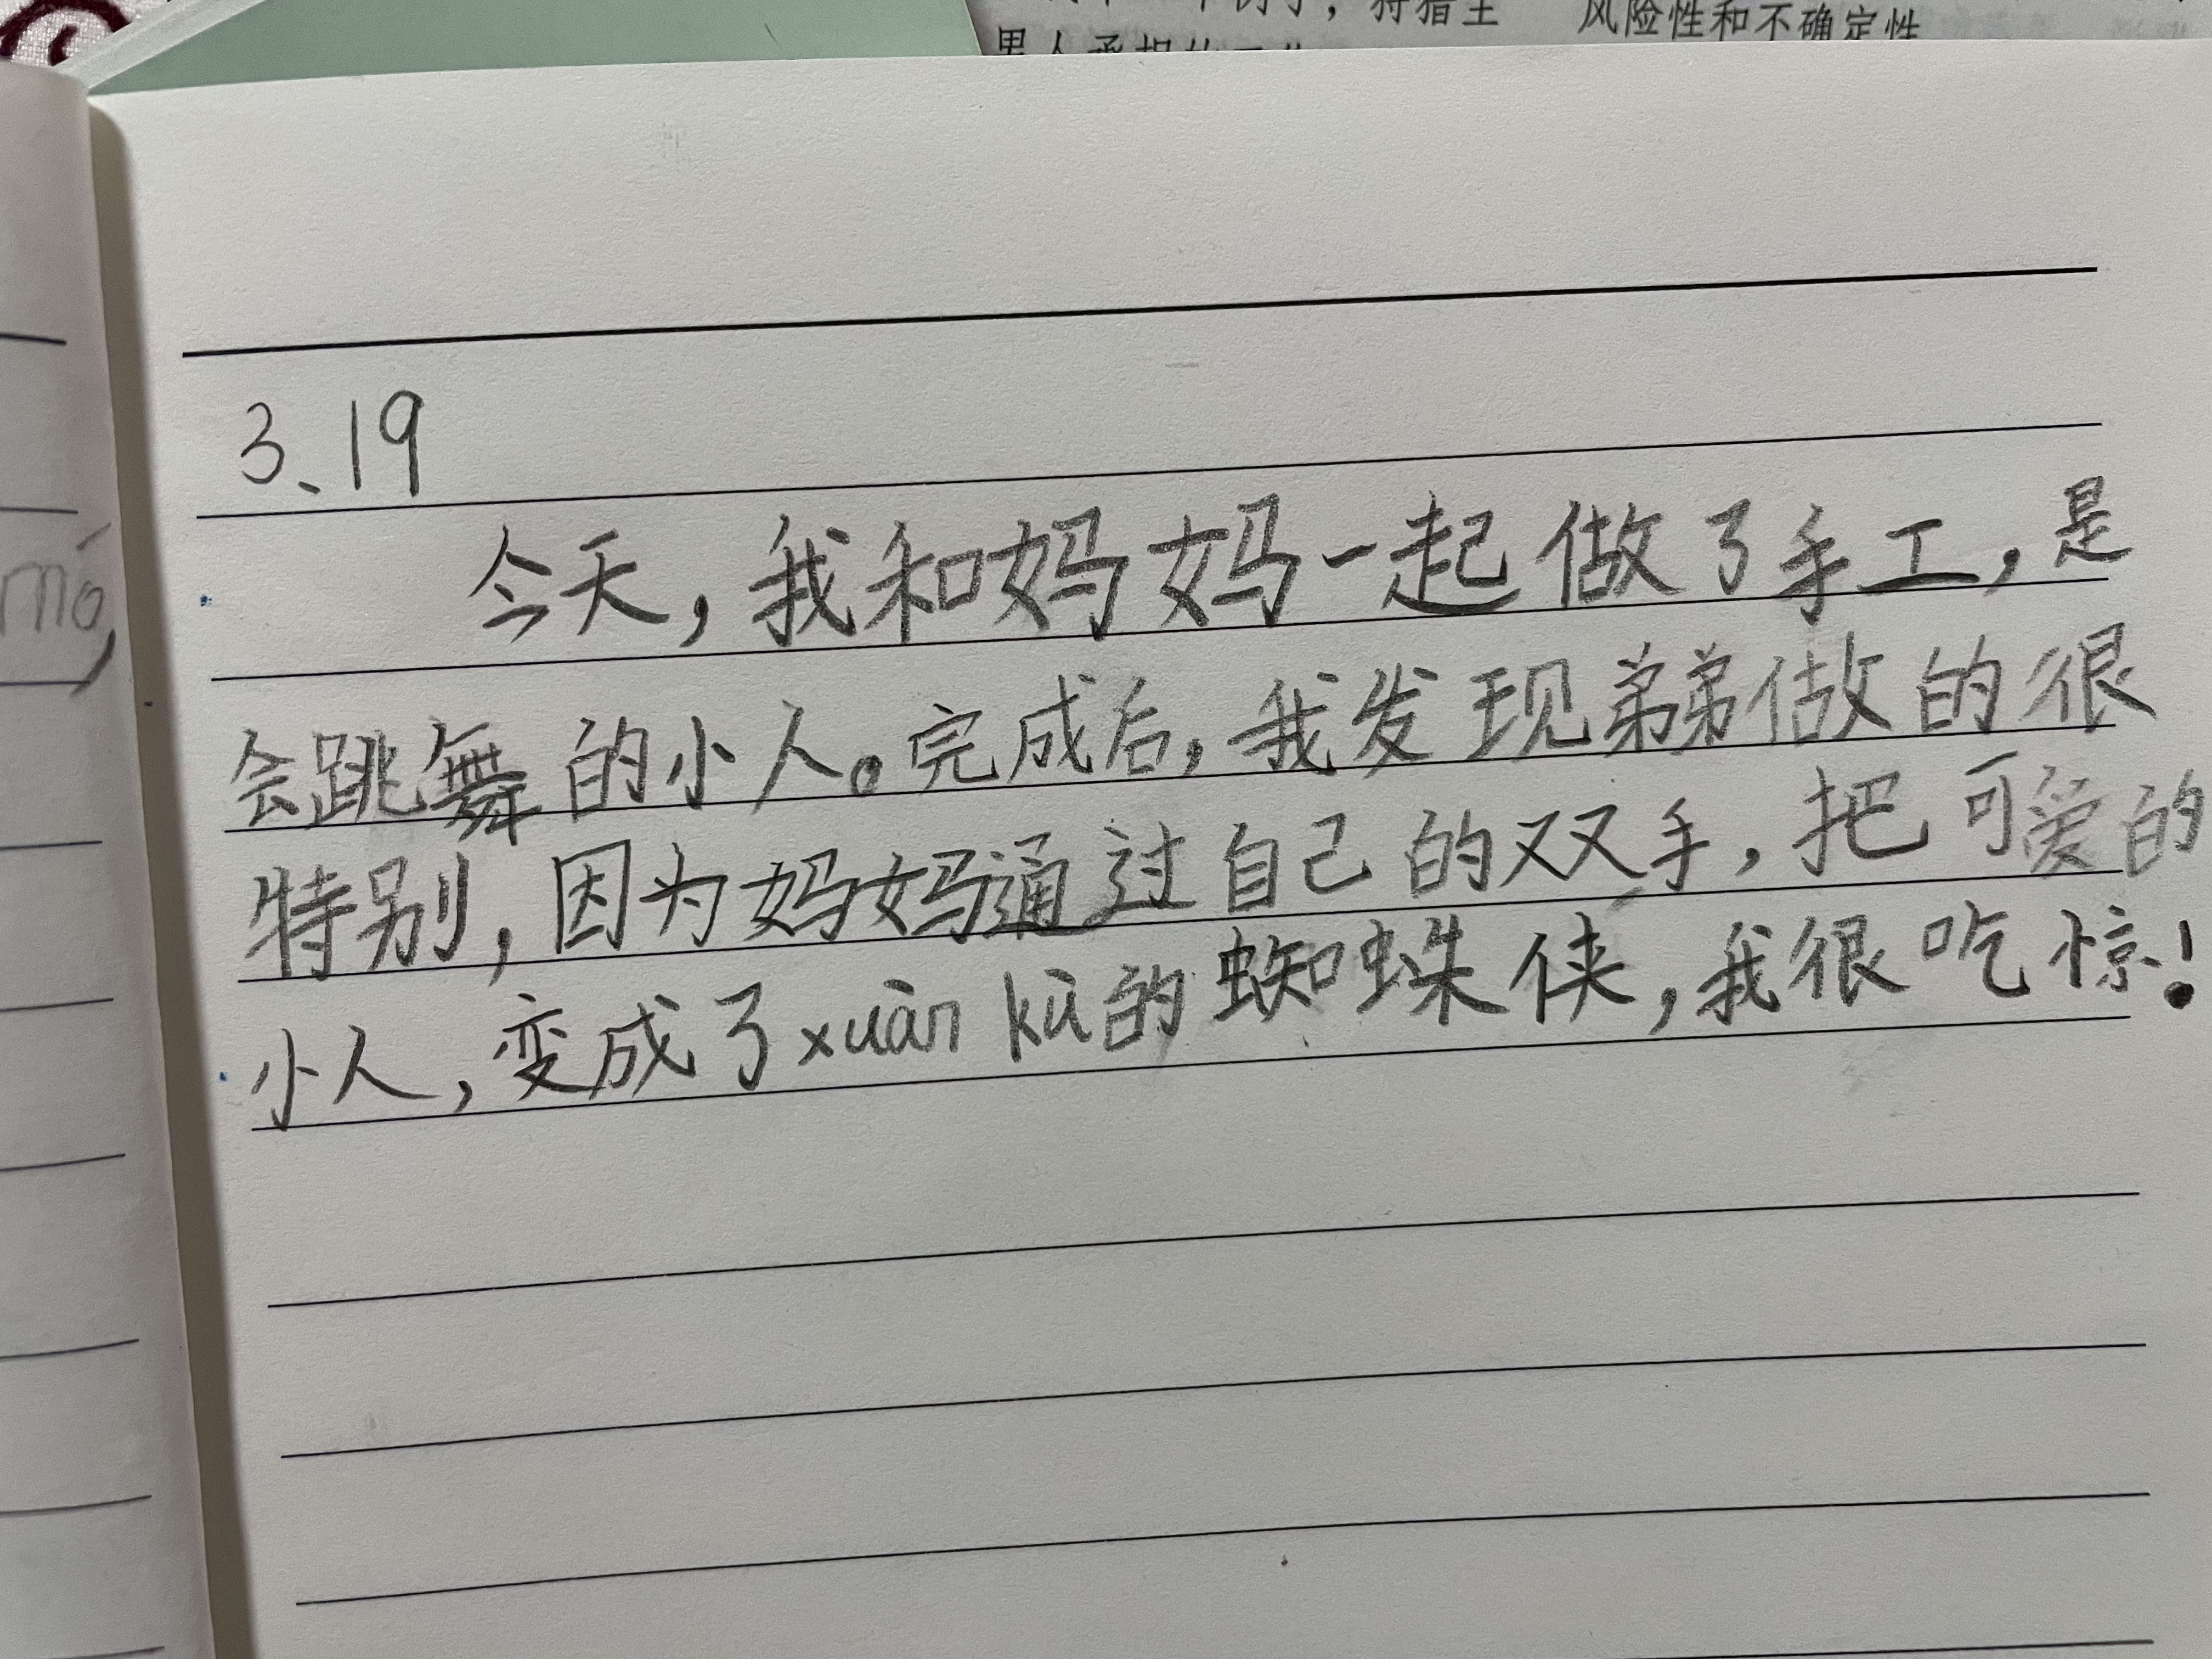 风险性和不确定性
3、19
今天，我和妈妈一起做了手工，是
会跳舞的小人。完成后，我发现弟弟做的很
特别，因为妈妈通过自己的双手，把可爱的
小人，变成了xuàn kù的蜘蛛侠，我很吃惊！